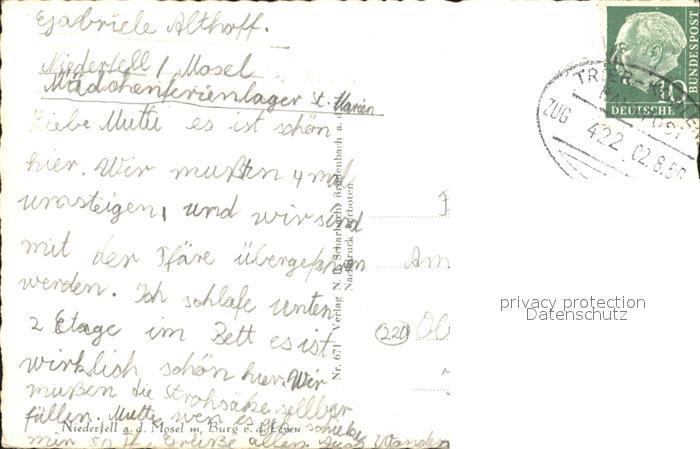 Gabriele Althoff.
Niederfell / Mosel
Mädchenferienlager St. Marien
Liebe Mutti es ist schön
hier. Wir mußten 4 mal
umsteigen, und wir sind
mit der Färe übergefahren
werden. Ich schlafe unten
2 Etage im Bett es ist
wirklich schön hier. Wir
mußen die Strohsäke sellber
füllen. Mutti wen es geht schicke
mir 50 Pf. Grüße allen
Niederfell a. d. Mosel m. Burg v. d. Leyen
Nr. 671 Verlag N. Scharbach, Brodenbach a. d.
Nachdruck verboten
Am
(22a) Ol
DEUTSCHE BUNDESPOST
10
TRIER-KOBLENZ
BAHNPOST
ZUG 422 02.8.56
privacy protection
Datenschutz